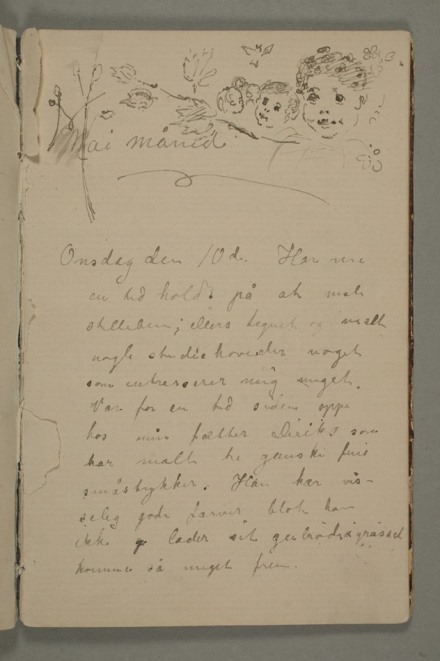 Mai måned
Onsdag den 10de. Har nu
en tid holdt på at male
stilleben; ellers tegnet og malt
nogle studiehoveder noget
som interesserer mig meget.
Var for en tid siden oppe
hos min fætter Diriks som
har malt to ganske fine
småstykker. Han har vis-
selig gode farver blot han
ikke lader sit
kommer så meget frem.